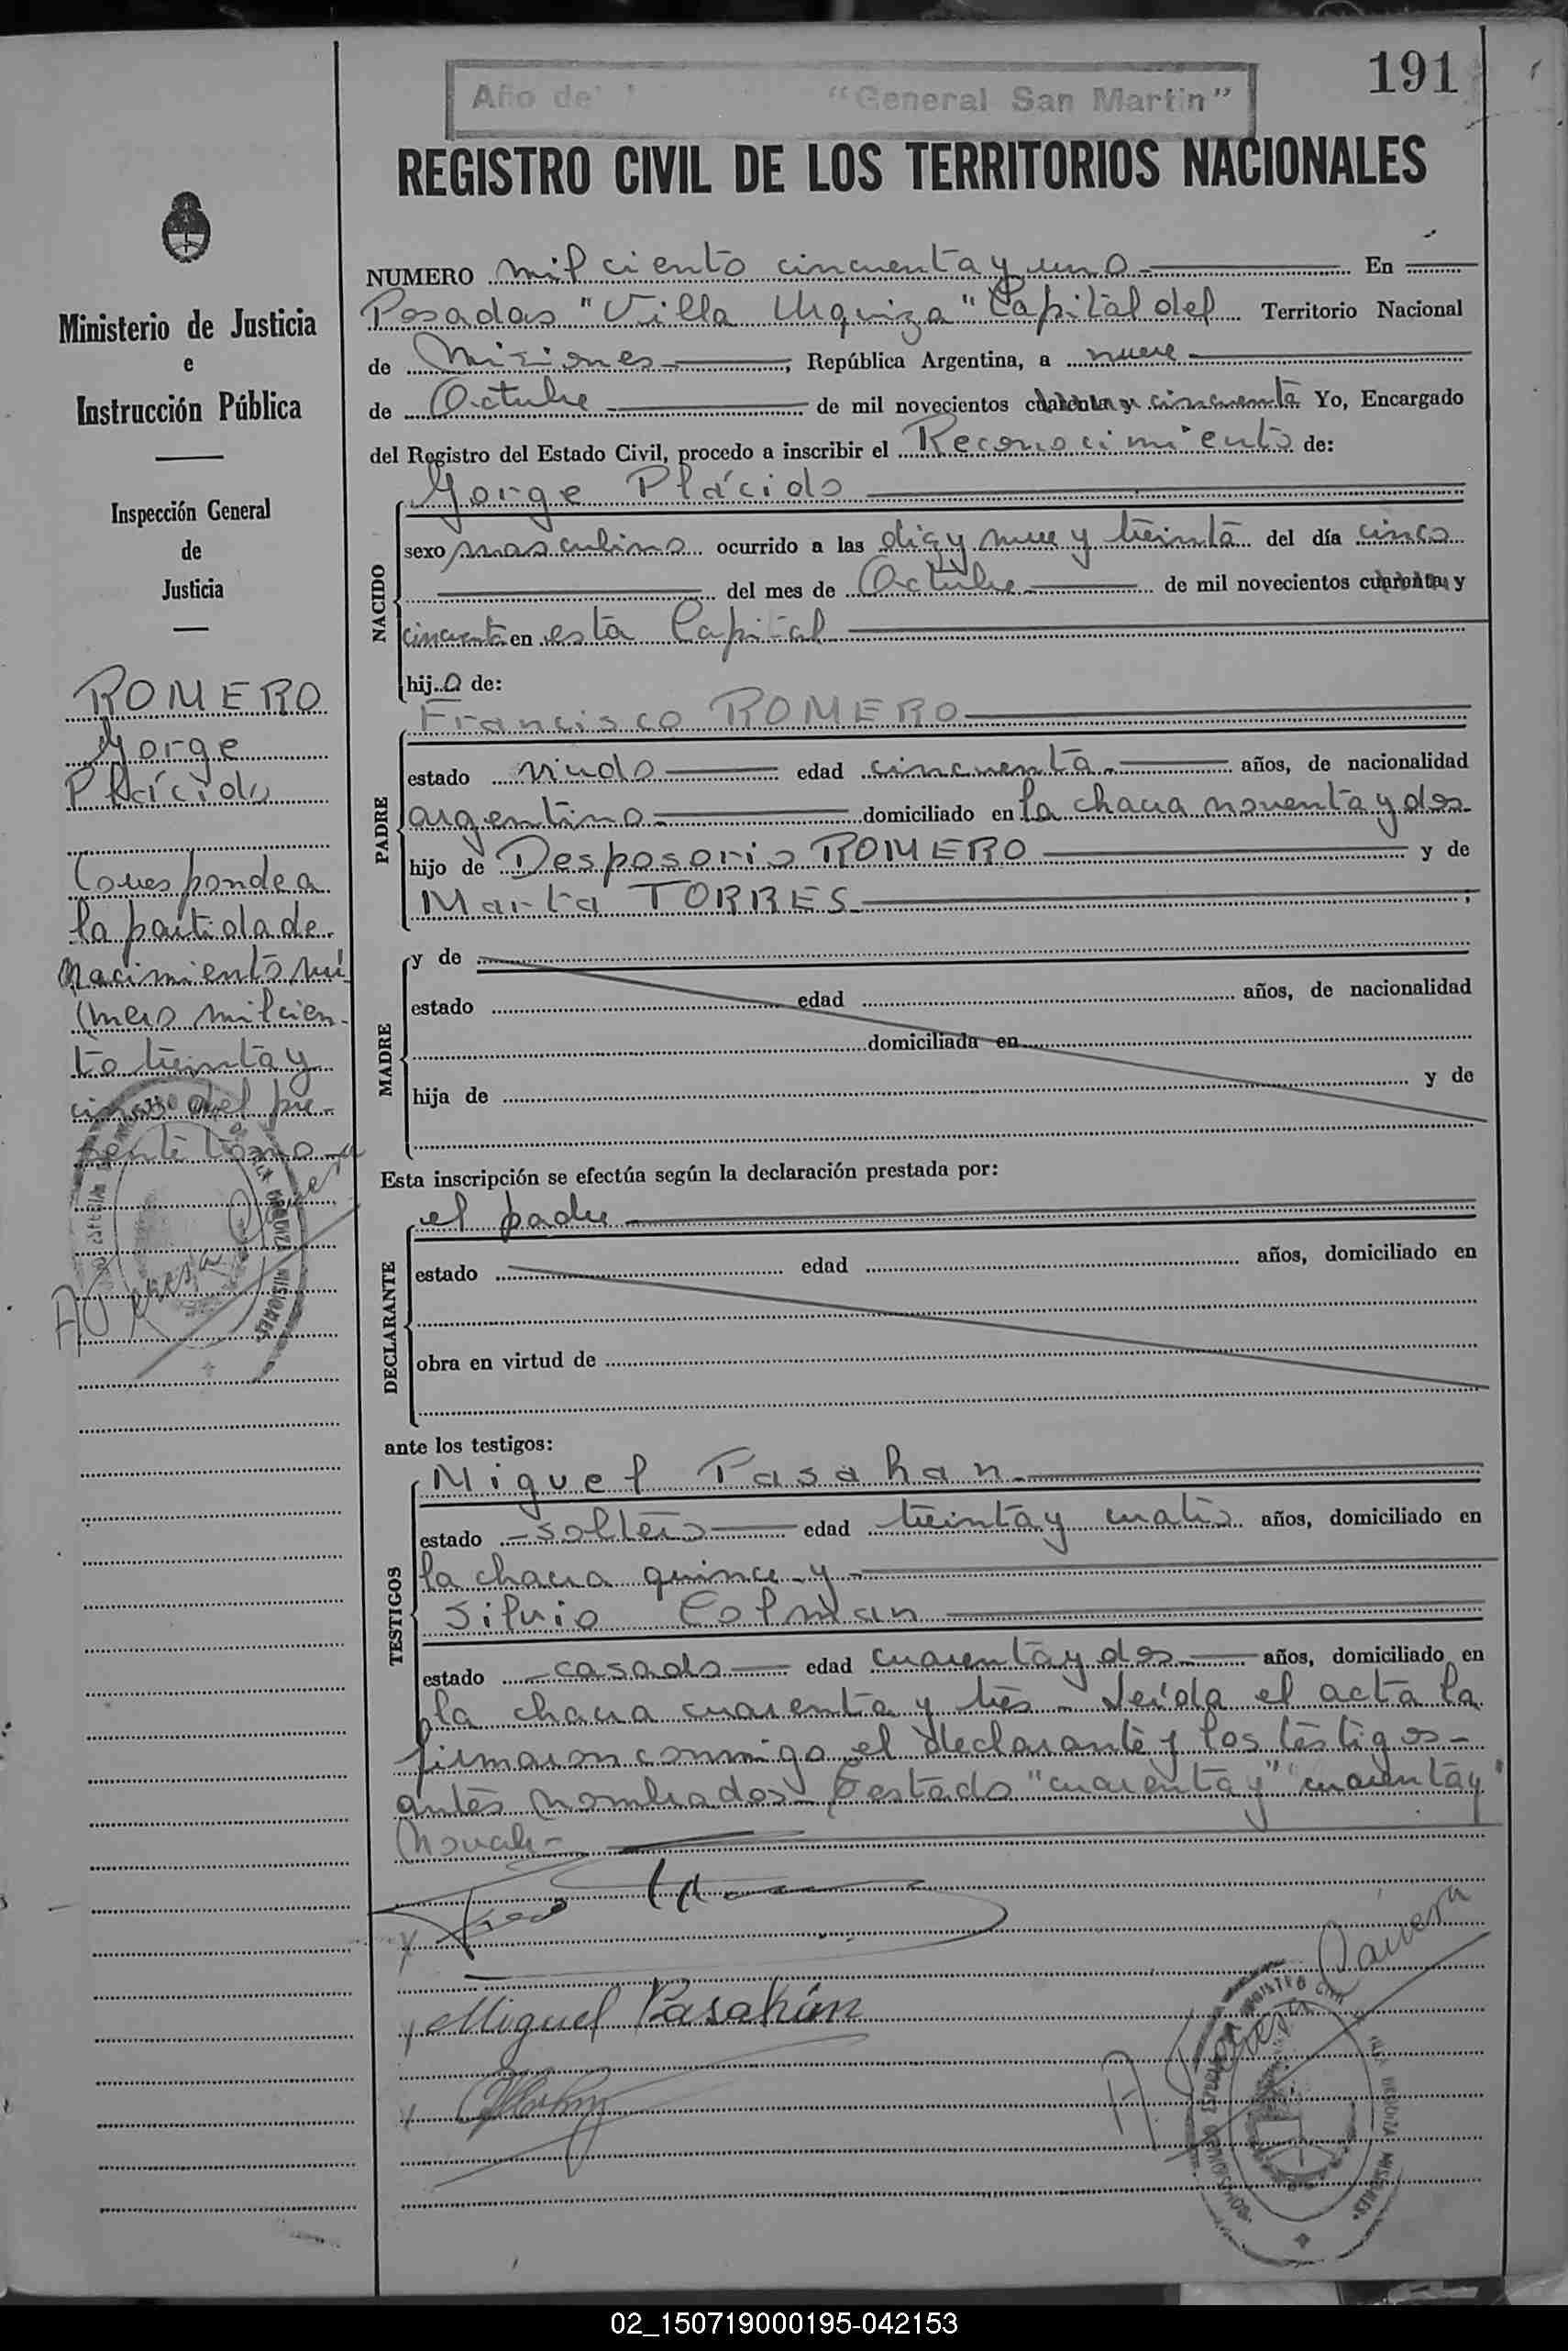 191
Año de "General San Martin"
REGISTRO CIVIL DE LOS TERRITORIOS NACIONALES
Ministerio de Justicia
e
Instrucción Pública
Inspección General
de
Justicia
ROMERO
Jorge
Plácido
Corresponde a
la partida de
nacimiento nú
mero mil cien-
to treinta y
cinco del pre-
sente tomo
NUMERO mil ciento cincuenta y uno En
Posadas "Villa Urquiza" Capital del Territorio Nacional
de Misiones, República Argentina, a nueve
de Octubre de mil novecientos cuarenta y cincuenta Yo, Encargado
del Registro del Estado Civil, procedo a inscribir el Reconocimiento de:
NACIDO
Jorge Plácido
sexo masculino ocurrido a las diez y nueve y treinta del día cinco
del mes de Octubre de mil novecientos cuarenta y
cincuenta en esta Capital
hijo de:
PADRE
Francisco ROMERO
estado viudo edad cincuenta años, de nacionalidad
argentino domiciliado en la chacra noventa y dos
hijo de Desposorio ROMERO y de
Marta TORRES;
MADRE
y de
estado edad años, de nacionalidad
domiciliada en
hija de y de
Esta inscripción se efectúa según la declaración prestada por:
DECLARANTE
el padre
estado edad años, domiciliado en
obra en virtud de
ante los testigos:
TESTIGOS
Miguel Pasahan
estado soltero edad treinta y cuatro años, domiciliado en
la chacra quince y
Silvio Colman
estado casado edad cuarenta y dos años, domiciliado en
la chacra cuarenta y tres - Leída el acta la
firmaron conmigo el declarante y los testigos -
antes nombrados - Testado "cuarenta y" "cuarenta y"
No vale -
Miguel Pasahán
02_150719000195-042153